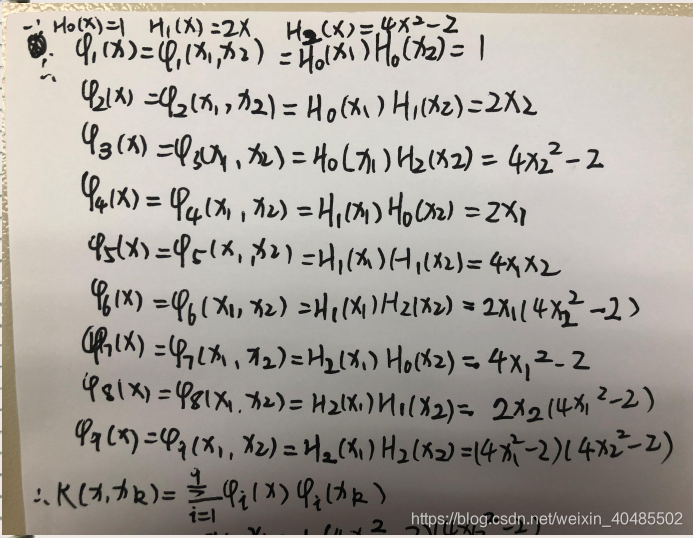 ∵ H₀(x)=1 H₁(x)=2x H₂(x)=4x²-2
∴ φ₁(x)=φ₁(x₁,x₂)=H₀(x₁)H₀(x₂)=1
φ₂(x)=φ₂(x₁,x₂)=H₀(x₁)H₁(x₂)=2x₂
φ₃(x)=φ₃(x₁,x₂)=H₀(x₁)H₂(x₂)=4x₂²-2
φ₄(x)=φ₄(x₁,x₂)=H₁(x₁)H₀(x₂)=2x₁
φ₅(x)=φ₅(x₁,x₂)=H₁(x₁)H₁(x₂)=4x₁x₂
φ₆(x)=φ₆(x₁,x₂)=H₁(x₁)H₂(x₂)=2x₁(4x₂²-2)
φ₇(x)=φ₇(x₁,x₂)=H₂(x₁)H₀(x₂)=4x₁²-2
φ₈(x)=φ₈(x₁,x₂)=H₂(x₁)H₁(x₂)=2x₂(4x₁²-2)
φ₉(x)=φ₉(x₁,x₂)=H₂(x₁)H₂(x₂)=(4x₁²-2)(4x₂²-2)
∴K(x,xₖ)=∑ᵢ₌₁⁹φᵢ(x)φᵢ(xₖ)
https://blog.csdn.net/weixin_40485502